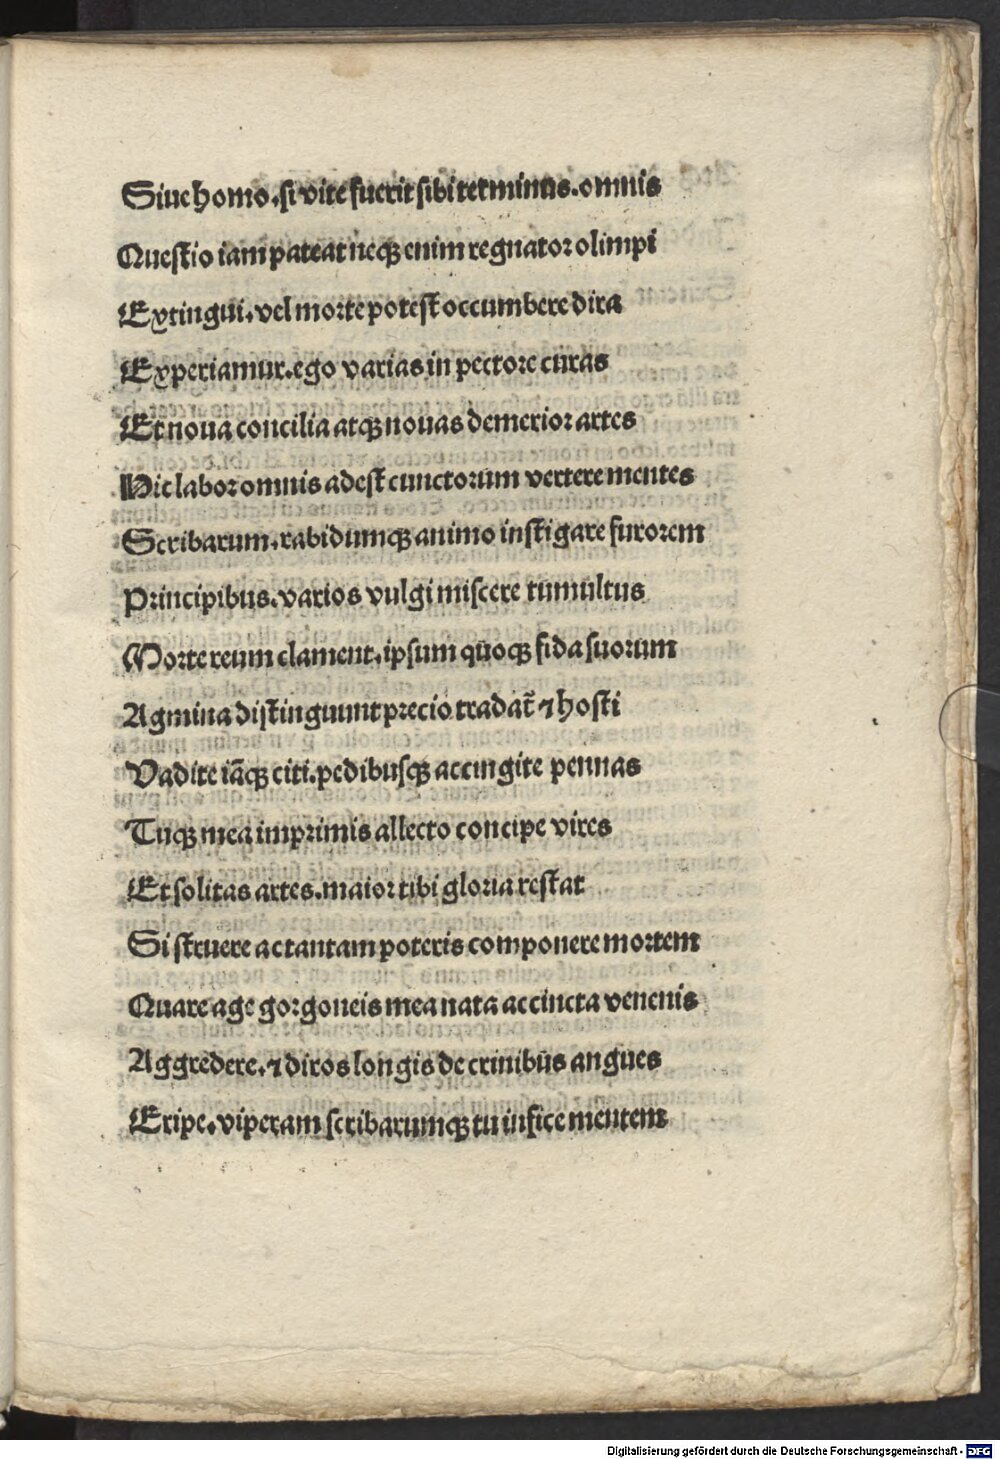 Siue homo. si vite fuerit sibi terminus. omnis
Questio iam pateat neqꝫ enim regnator olimpi
Extingui. vel morte potest occumbere dira
Experiamur. ego varias in pectore curas
Et noua concilia atqꝫ nouas demerior artes
Hic labor omnis adest cunctorum vertere mentes
Scribarum. rabidumqꝫ animo instigare furorem
Principibus. varios vulgi miscere tumultus
Morte reum clament. ipsum quoqꝫ fida suorum
Agmina distinguunt precio tradat̄ ⁊ hosti
Vadite iāqꝫ citi. pedibusqꝫ accingite pennas
Tuqꝫ mea imprimis allecto concipe vires
Et solitas artes. maior tibi gloria restat
Si struere ac tantam poteris componere mortem
Quare age gorgoneis mea nata accincta venenis
Aggredere. ⁊ diros longis de crinibus angues
Eripe. viperam scribarumqꝫ tu infice mentem
Digitalisierung gefördert durch die Deutsche Forschungsgemeinschaft - DFG